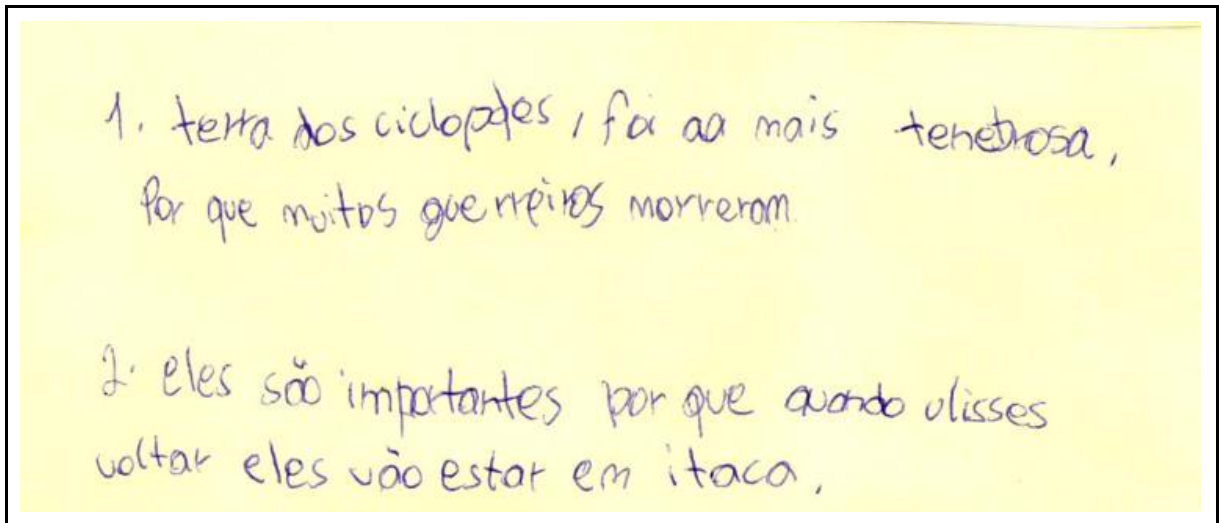 1. terra dos ciclopdes, foi aa mais tenebrosa,
Por que muitos guerreiros morreram.
2. eles são importantes por que quando ulisses
voltar eles vão estar em itaca,